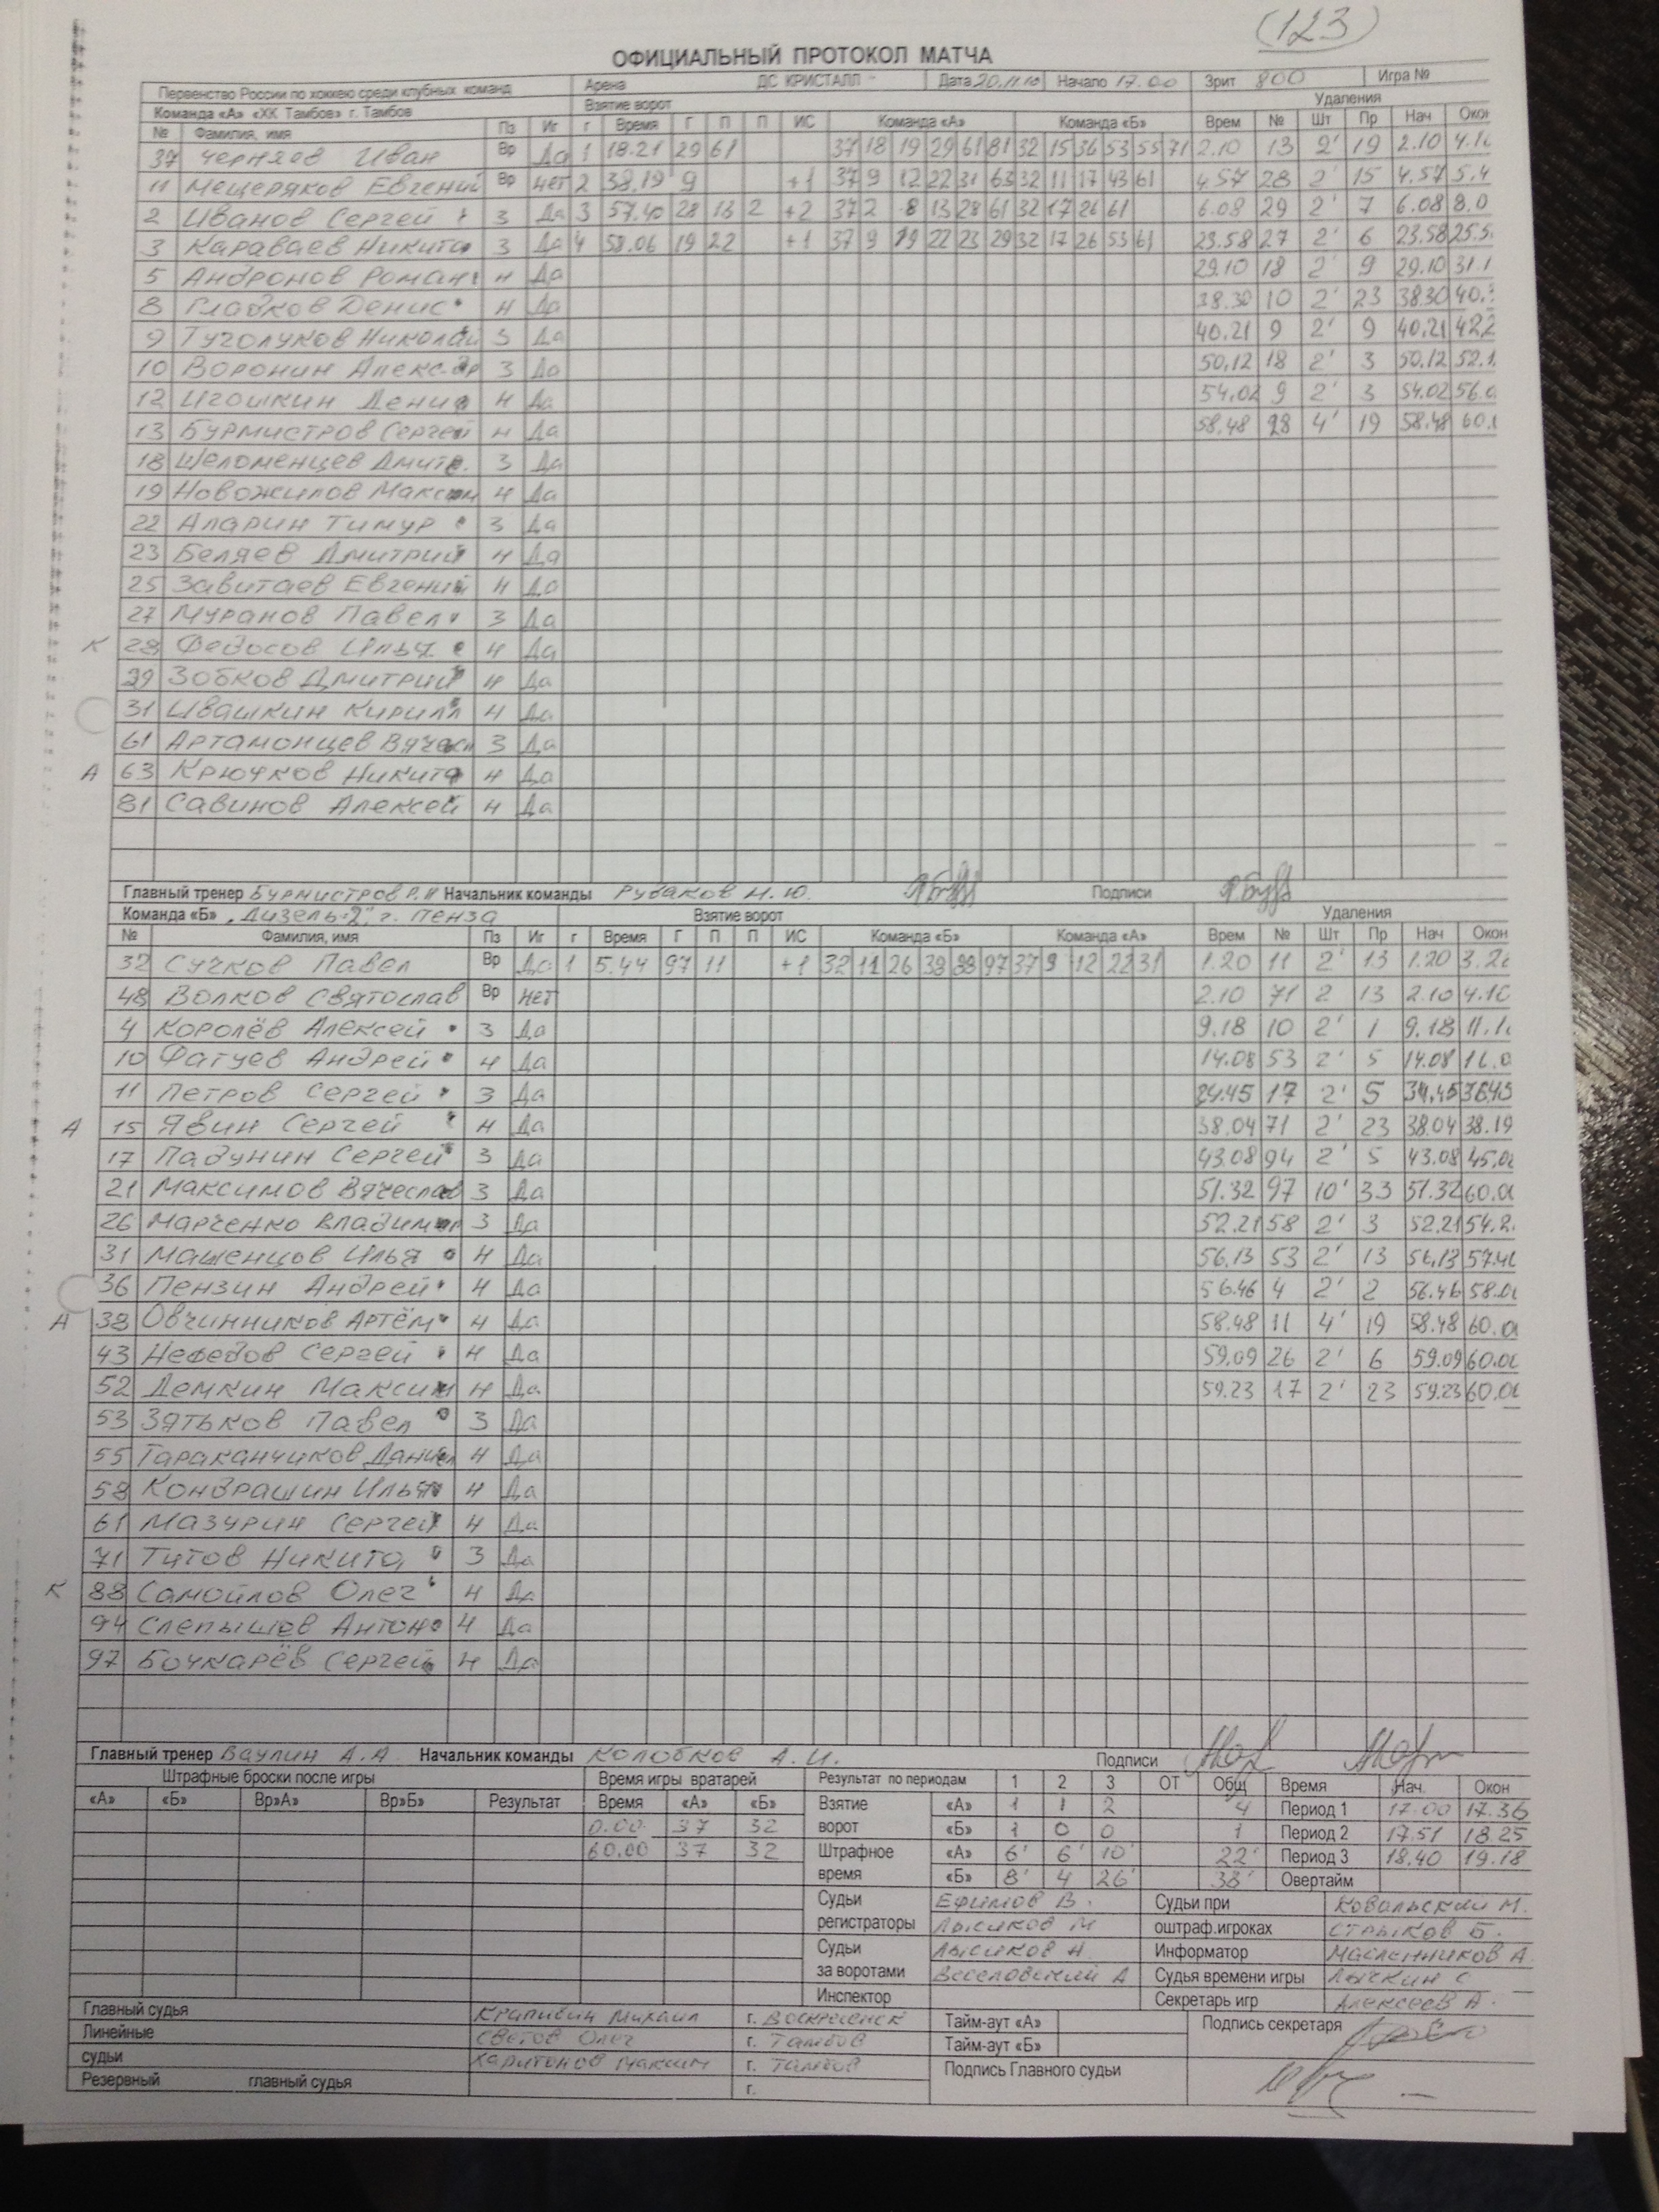 (123)
ОФИЦИАЛЬНЫЙ ПРОТОКОЛ МАТЧА
Первенство России по хоккею среди клубных команд Арена ДС КРИСТАЛЛ Дата 20.11.10 Начало 17.00 Зрит 800 Игра №
Команда «А» «ХК Тамбов» г. Тамбов Взятие ворот Удаления
№ Фамилия, имя Пз Иг г Время Г П П ИС Команда «А» Команда «Б» Врем № Шт Пр Нач Окон
37 Черняев Иван Вр Да 1 18.21 29 61 37 18 19 29 61 81 32 15 36 53 55 71 2.10 13 2' 19 2.10 4.10
11 Мещеряков Евгений Вр нет 2 38.19 9 +1 37 9 12 22 31 63 32 11 17 43 61 4.57 28 2' 15 4.57 5.4
2 Иванов Сергей 3 Да 3 57.40 28 13 2 +2 37 2 8 13 28 61 32 17 26 61 6.08 29 2' 7 6.08 8.0
3 Караваев Никита 3 Да 4 58.06 19 22 +1 37 9 19 22 23 29 32 17 26 53 61 23.58 27 2' 6 23.58 25.5
5 Андронов Роман Н Да 29.10 18 2' 9 29.10 31.1
8 Гладков Денис Н Да 38.30 10 2' 23 38.30 40.
9 Туголуков Николай 3 Да 40.21 9 2' 9 40.21 42.2
10 Воронин Алекс-др 3 Да 50.12 18 2' 3 50.12 52.1
12 Игошкин Денис Н Да 54.02 9 2' 3 54.02 56.0
13 Бурмистров Сергей Н Да 58.48 28 4' 19 58.48 60.
18 Шеломенцев Дмитр. 3 Да
19 Новожилов Максим Н Да
22 Аларин Тимур 3 Да
23 Беляев Дмитрий Н Да
25 Завитаев Евгений Н Да
27 Муранов Павел 3 Да
К 28 Федосов Илья Н Да
29 Зобков Дмитрий Н Да
31 Ивашкин Кирилл Н Да
61 Артамонцев Вячесл 3 Да
А 63 Крючков Никита Н Да
81 Савинов Алексей Н Да
Главный тренер Бурмистров Р.И Начальник команды Рудаков Н.Ю. Подписи
Команда «Б» „Дизель-2" г. Пенза Взятие ворот Удаления
№ Фамилия, имя Пз Иг г Время Г П П ИС Команда «Б» Команда «А» Врем № Шт Пр Нач Окон
32 Сучков Павел Вр Да 1 5.44 97 11 +1 32 11 26 38 88 97 37 9 12 22 31 1.20 11 2' 13 1.20 3.20
48 Волков Святослав Вр нет 2.10 71 2 13 2.10 4.10
4 Королёв Алексей 3 Да 9.18 10 2' 1 9.18 11.1
10 Фатуев Андрей Н Да 14.08 53 2' 5 14.08 16.0
11 Петров Сергей 3 Да 34.45 17 2' 5 34.45 36.45
А 15 Явин Сергей Н Да 38.04 71 2' 23 38.04 38.19
17 Падунин Сергей 3 Да 43.08 94 2' 5 43.08 45.08
21 Максимов Вячеслав 3 Да 51.32 97 10' 33 51.32 60.00
26 Марченко Владимир 3 Да 52.21 58 2' 3 52.21 54.2
31 Машенцов Илья Н Да 56.13 53 2' 13 56.13 57.40
36 Пензин Андрей Н Да 56.46 4 2' 2 56.46 58.0
А 38 Овчинников Артём Н Да 58.48 11 4' 19 58.48 60.0
43 Нефедов Сергей Н Да 59.09 26 2' 6 59.09 60.00
52 Демкин Максим Н Да 59.23 17 2' 23 59.23 60.00
53 Зятьков Павел 3 Да
55 Тараканчиков Данил Н Да
58 Кондрашин Илья Н Да
61 Мазурин Сергей Н Да
71 Титов Никита 3 Да
К 88 Самойлов Олег Н Да
94 Слепышев Антон Н Да
97 Бочкарёв Сергей Н Да
Главный тренер Ваулин А.А. Начальник команды Колобков А.И. Подписи
Штрафные броски после игры Время игры вратарей Результат по периодам 1 2 3 ОТ Общ Время Нач. Окон
«А» «Б» Вр»А» Вр»Б» Результат Время «А» «Б» Взятие «А» 1 1 2 4 Период 1 17.00 17.36
0.00 37 32 ворот «Б» 1 0 0 1 Период 2 17.51 18.25
60.00 37 32 Штрафное «А» 6' 6' 10' 22' Период 3 18.40 19.18
время «Б» 8' 4 26' 38' Овертайм
Судьи Ефимов В. Судьи при Ковальский М.
регистраторы Лысиков М оштраф.игроках Стрыков Б.
Судьи Лысиков Н. Информатор Масленников А.
за воротами Веселовский А Судья времени игры Лычкин С
Инспектор Секретарь игр Алексеев А.
Главный судья Крапивин Михаил г. Воскресенск Тайм-аут «А» Подпись секретаря
Линейные Светов Олег г. Тамбов Тайм-аут «Б»
судьи Харитонов Максим г. Тамбов Подпись Главного судьи
Резервный главный судья г.